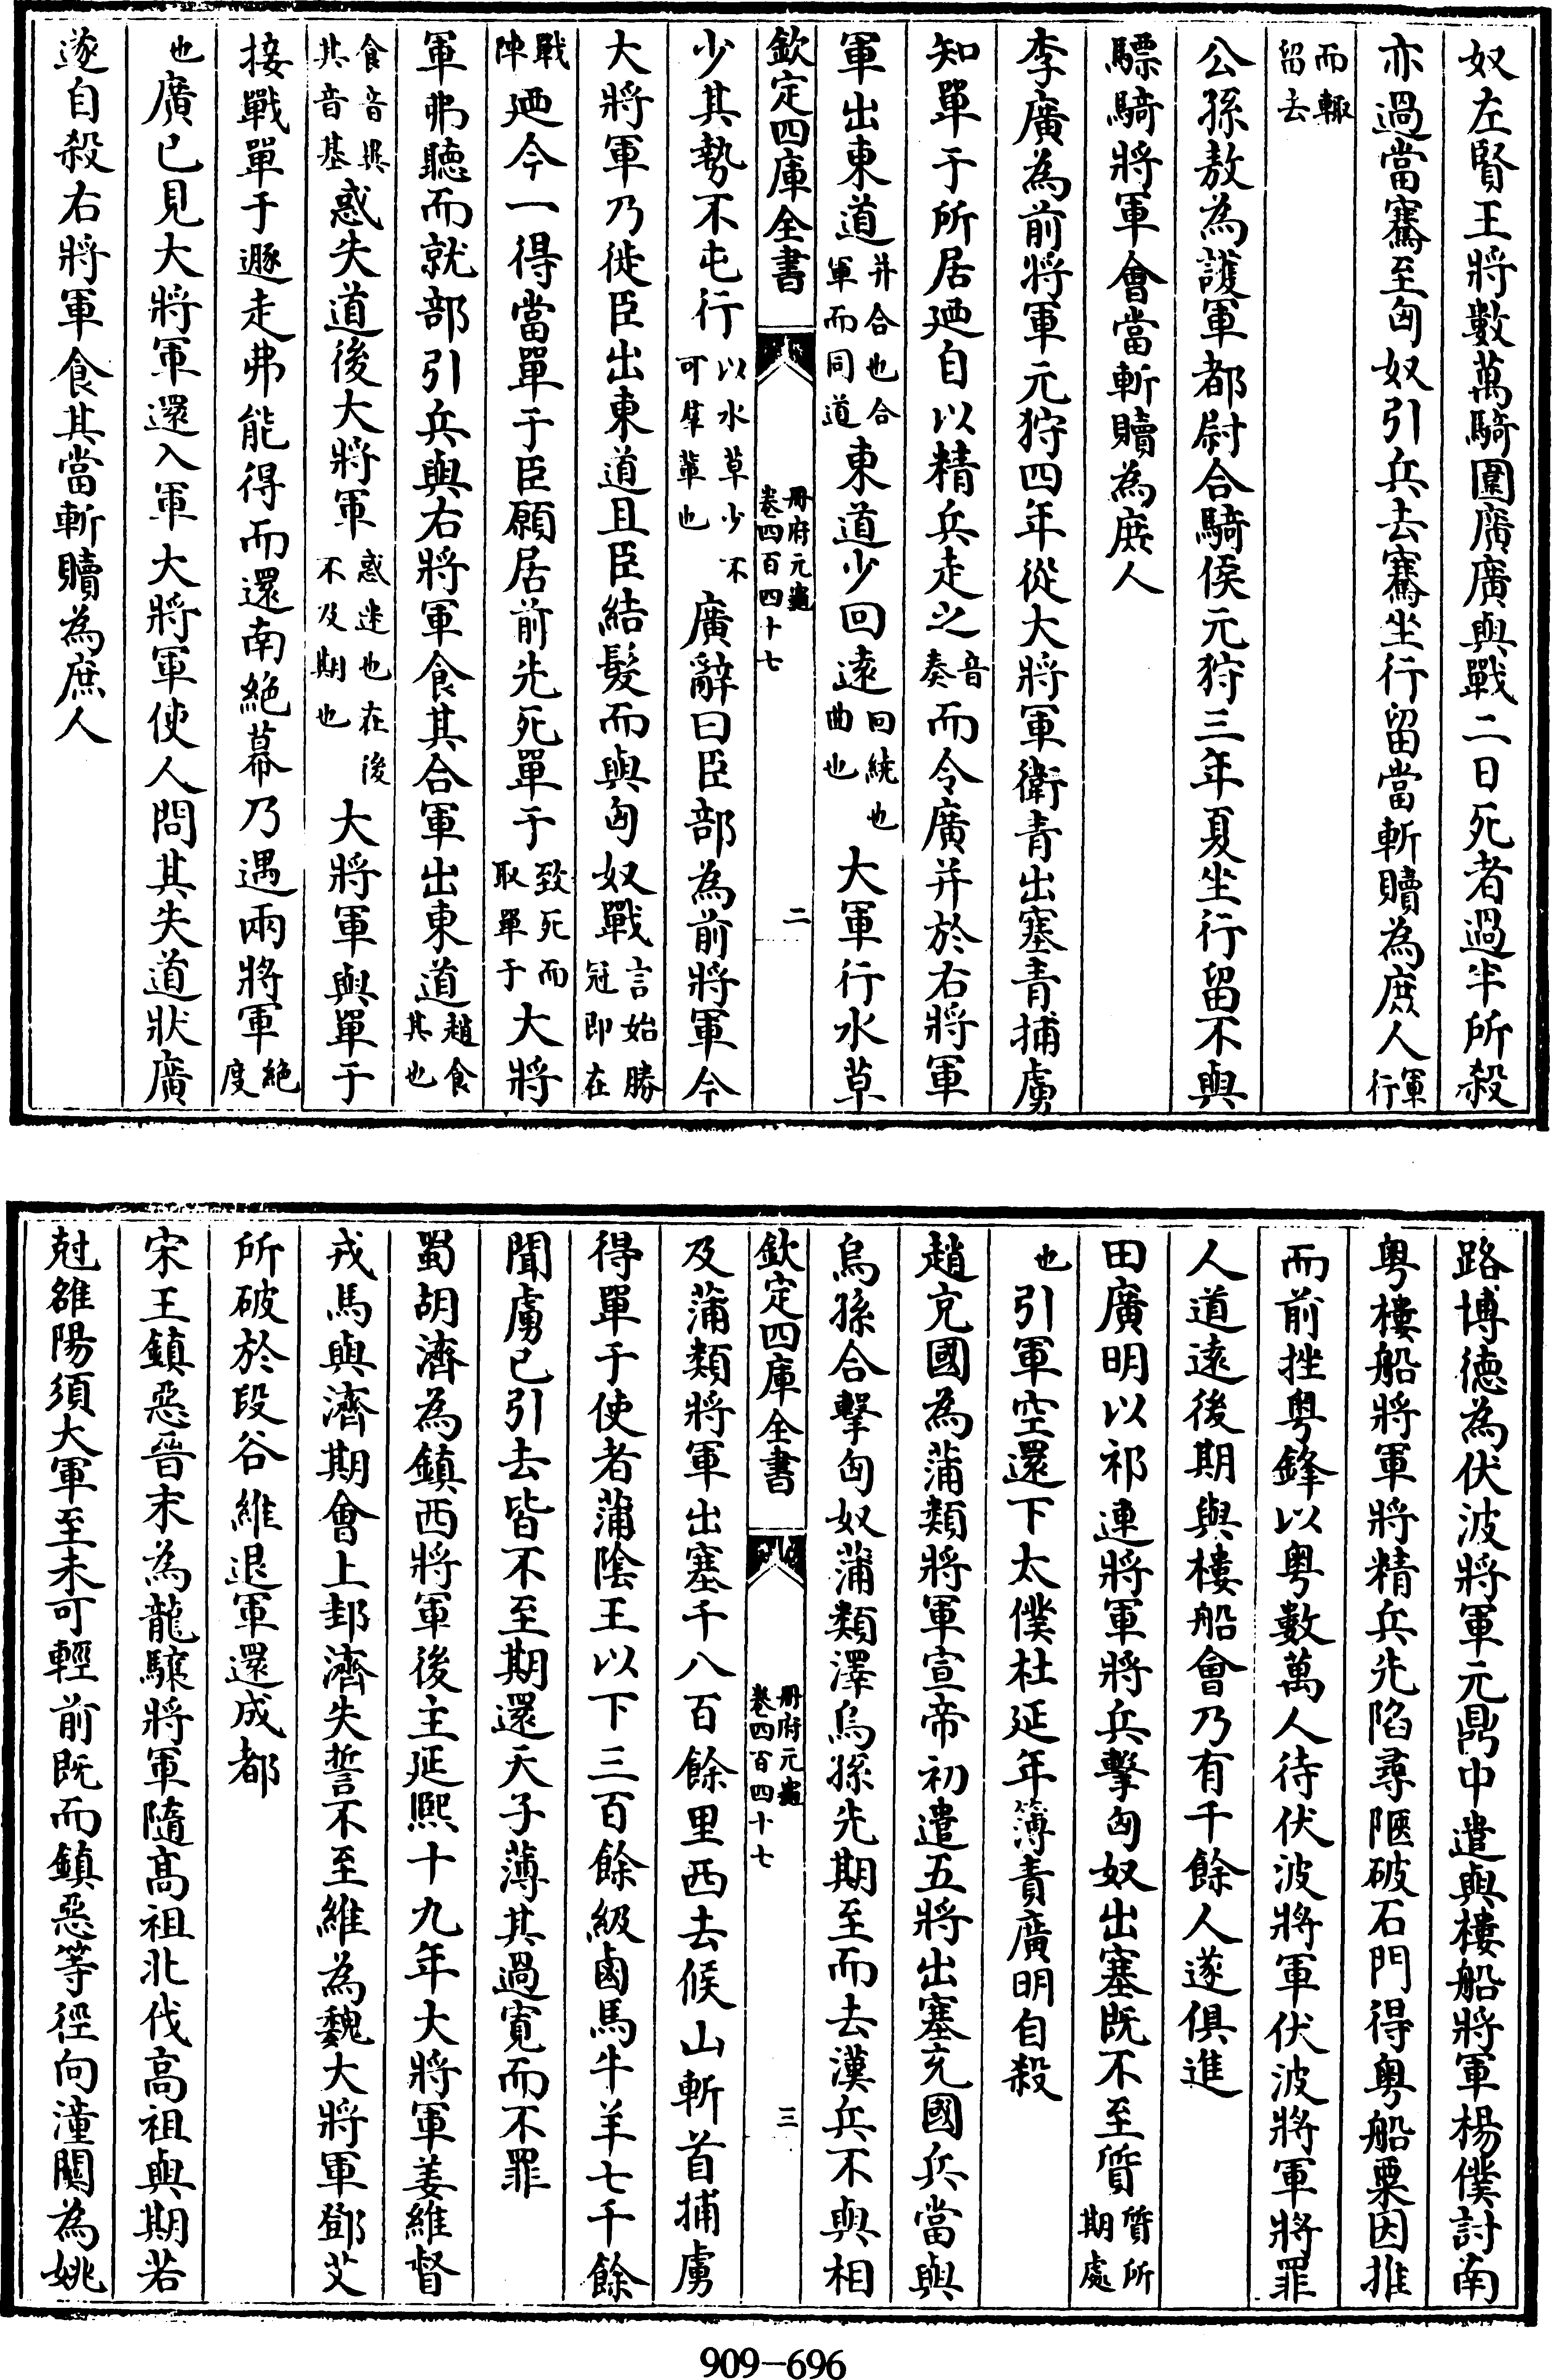 奴左賢王將數萬騎圍廣廣與戰二日死者過半所殺
亦過當騫至匈奴引兵去騫坐行留當斬贖為庶人軍行
而輒留去
公孫敖為護軍都尉合騎侯元狩三年夏坐行留不與
驃騎將軍會當斬贖為庶人
李廣為前將軍元狩四年從大將軍衛青出塞青捕虜
知單于所居廼自以精兵走之音奏而令廣并於右將軍
軍出東道并合也合軍而同道東道少回遠回繞也曲也大軍行水草
欽定四庫全書 冊府元龜卷四百四十七 二
少其勢不屯行以水草少不可羣輩也廣辭曰臣部為前將軍今
大將軍乃徙臣出東道且臣結髮而與匈奴戰言始勝冠即在
戰陣廼今一得當單于臣願居前先死單于致死而取單于大將
軍弗聽而就部引兵與右將軍食其合軍出東道趙食其也
食音異其音基惑失道後大將軍惑迷也在後不及期也大將軍與單于
接戰單于遯走弗能得而還南絕幕乃遇兩將軍絕度
也廣已見大將軍還入軍大將軍使人問其失道狀廣
遂自殺右將軍食其當斬贖為庶人
路博德為伏波將軍元鼎中遣與樓船將軍楊僕討南
粵樓船將軍將精兵先陷尋陿破石門得粵船粟因推
而前挫粵鋒以粵數萬人待伏波將軍伏波將軍將罪
人道遠後期與樓船會乃有千餘人遂俱進
田廣明以祁連將軍將兵擊匈奴出塞既不至質質所期處
也引軍空還下太僕杜延年簿責廣明自殺
趙充國為蒲類將軍宣帝初遣五將出塞充國兵當與
烏孫合擊匈奴蒲類澤烏孫先期至而去漢兵不與相
欽定四庫全書 冊府元龜卷四百四十七 三
及蒲類將軍出塞千八百餘里西去候山斬首捕虜
得單于使者蒲陰王以下三百餘級鹵馬牛羊七千餘
聞虜已引去皆不至期還天子薄其過寬而不罪
蜀胡濟為鎮西將軍後主延熙十九年大將軍姜維督
戎馬與濟期會上邽濟失誓不至維為魏大將軍鄧艾
所破於段谷維退軍還成都
宋王鎮惡晉末為龍驤將軍隨高祖北伐高祖與期若
尅雒陽須大軍至未可輕前既而鎮惡等徑向潼關為姚
909-696